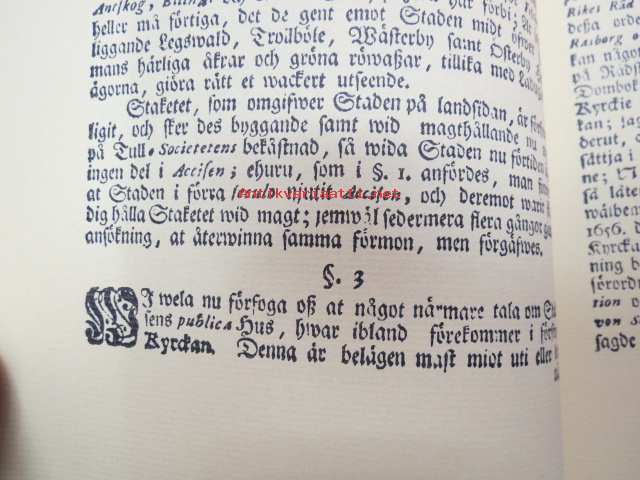 heller må förtiga, det de gent emot Staden midt öfwer
liggande Legswald, Trollböle, Wästerby samt Österby
mans härliga åkrar och gröna röwaßar, tillika med
ägorna, giöra rätt et wackert utseende.
Staketet, som omgifwer Staden på landsidan, är
ligit, och sker des byggande samt wid magthållande nu
på Tull-Societetens bekåstnad, så wida Staden nu förtiden
ingen del i Accisen; ehuru, som i §. 1. anfördes, man
at Staden i förra niutit Accisen, och deremot warit
dig hålla Staketet wid magt; jemwäl sedermera flera gångor
ansökning, at återwinna samma förmon, men förgäfwes.
§. 3
WI wela nu förfoga oß at något närmare tala om
sens publica Hus, hwar ibland förekommer i
Kyrckan. Denna är belägen mast miot uti eller
Rikes Råd
deßa orde
Rasborg
kan något
på Rådst
Dombok
Kyrckie
kan;
derut,
sättja i
ne;
så låte
wälbe
1656.
Kyrcka
ning
förord
tion
von
sagde